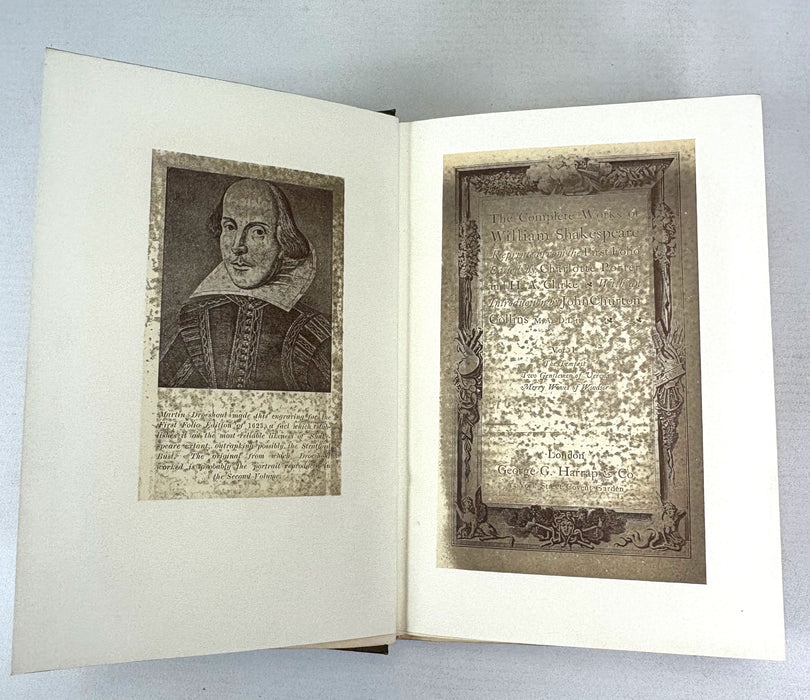 Martin Droeshout made this engraving for the
First Folio Edition of 1623, a fact which estab-
lishes it as the most reliable likeness of Shake-
speare extant, outranking possibly the Stratford
Bust. The original from which Droeshout
worked is probably the portrait reproduced in
the Second Volume.
The Complete Works of
William Shakespeare
Reprinted from the First Folio
Edited by Charlotte Porter
and H. A. Clarke With an
Introduction by John Churton
Collins
Tempest
Two Gentlemen of Verona
Merry Wives of Windsor
London
George G. Harrap & Co.
Street Covent Garden